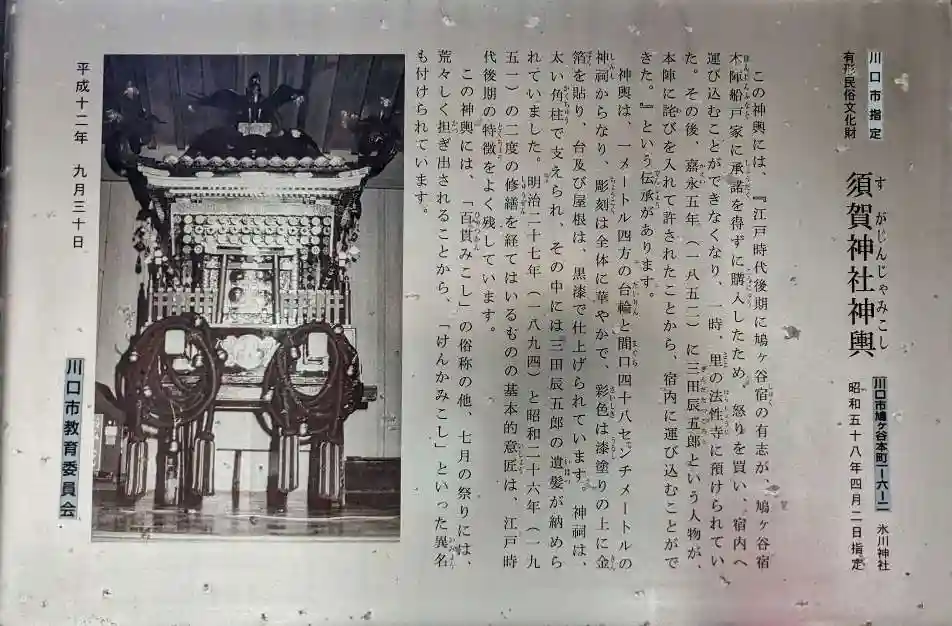 川口市指定
有形民俗文化財
須賀神社神輿
すがじんじゃみこし
川口市鳩ヶ谷本町一−六−二 氷川神社
昭和五十八年四月二日指定
この神輿には、『江戸時代後期に鳩ヶ谷宿の有志が、鳩ヶ谷宿
本陣船戸家に承諾を得ずに購入したため、怒りを買い、宿内へ
運び込むことができなくなり、一時、里の法性寺に預けられてい
た。その後、嘉永五年(一八五二)に三田辰五郎という人物が、
本陣に詫びを入れて許されたことから、宿内に運び込むことがで
きた。』という伝承があります。
神輿は、一メートル四方の台輪と間口四十八センチメートルの
神祠からなり、彫刻は全体に華やかで、彩色は漆塗りの上に金
箔を貼り、台及び屋根は、黒漆で仕上げられています。神祠は、
太い角柱で支えられ、その中には三田辰五郎の遺髪が納めら
れていました。明治二十七年(一八九四)と昭和二十六年(一九
五一)の二度の修繕を経てはいるものの基本的意匠は、江戸時
代後期の特徴をよく残しています。
この神輿には、「百貫みこし」の俗称の他、七月の祭りには、
荒々しく担ぎ出されることから、「けんかみこし」といった異名
も付けられています。
平成十二年 九月三十日
川口市教育委員会